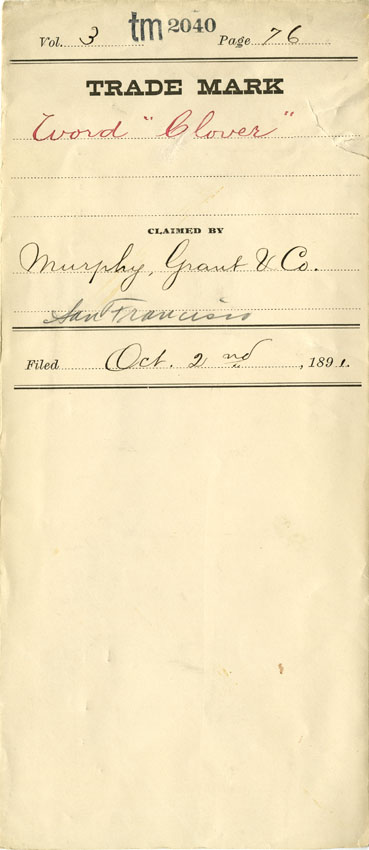 Vol. 3 tm 2040 Page 76
TRADE MARK
Word "Clover"
CLAIMED BY
Murphy, Grant & Co.
San Francisco
Filed Oct. 2nd, 1891.